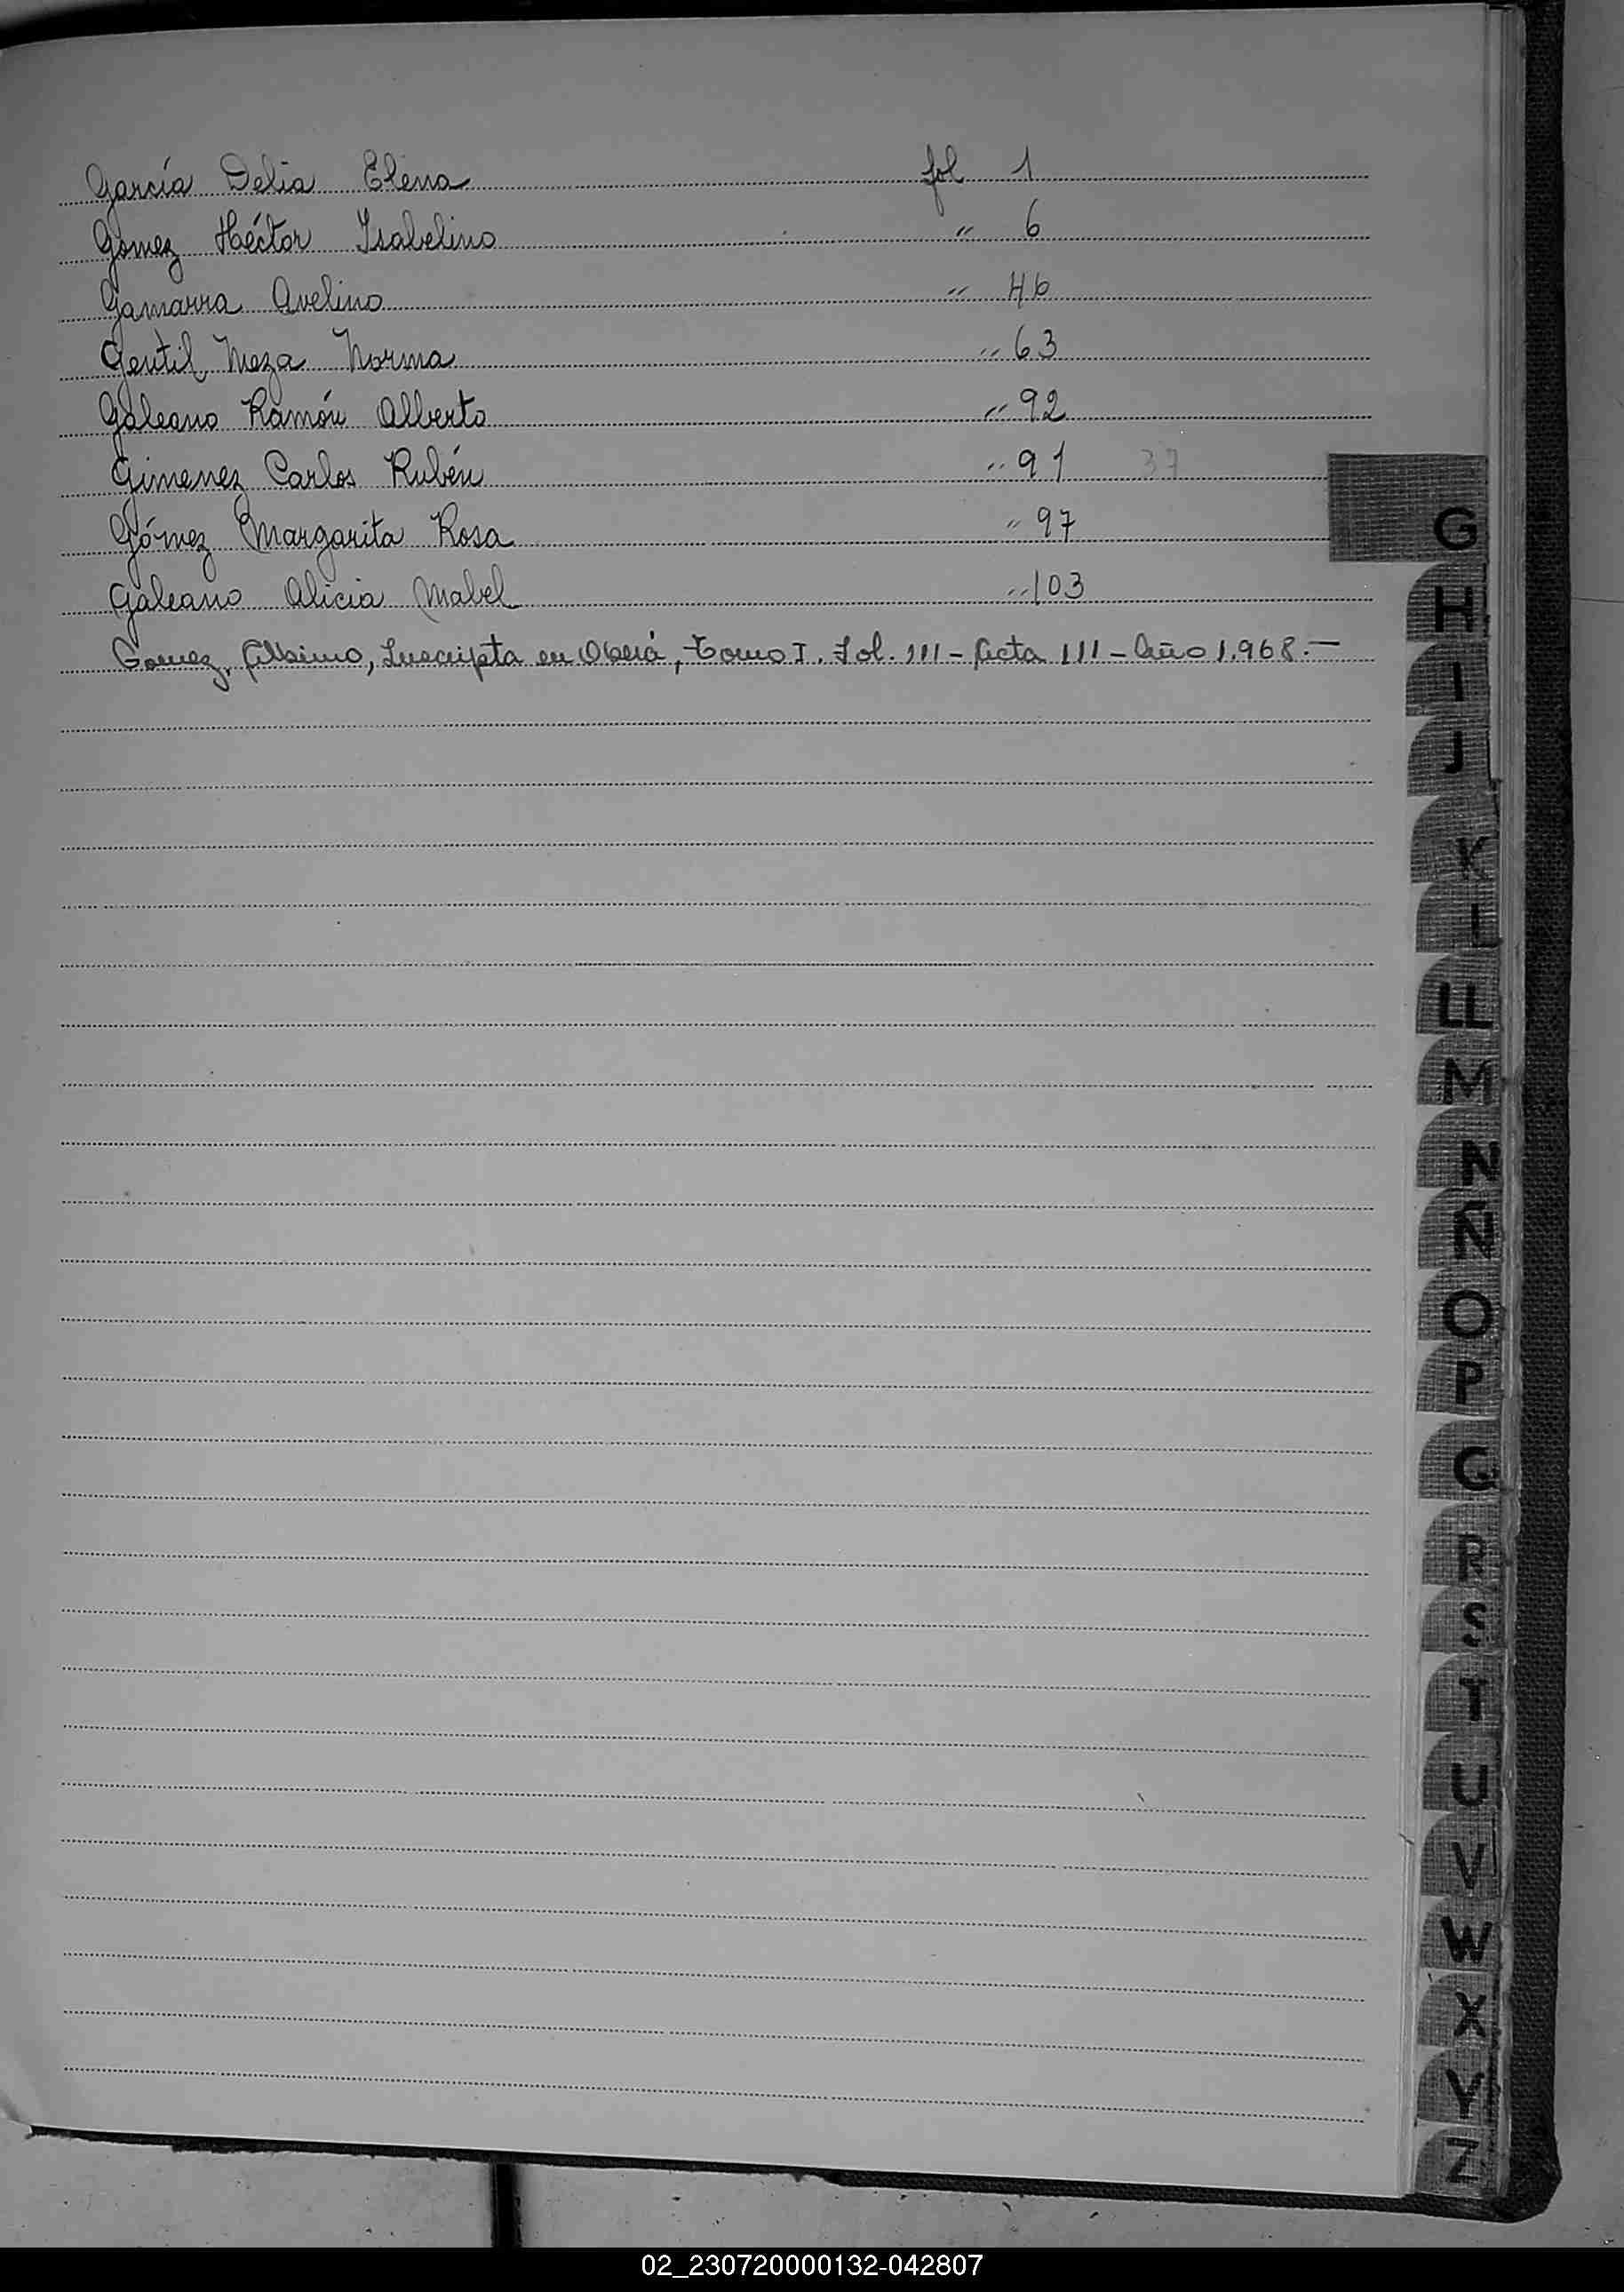 García Delia Elena fol 1
Gomez Héctor Isabelino " 6
Gamarra Avelino " 46
Gentil Meza Norma " 63
Galeano Ramón Alberto " 92
Gimenez Carlos Rubén " 91 37
Gómez Margarita Rosa " 97
Galeano Alicia Mabel " 103
Gomez, Inscripta en Oberá, Tomo I. Fol. 111 - Acta 111 - Año 1.968.-
G
H
I
J
K
L
LL
M
N
Ñ
O
P
Q
R
S
T
U
V
W
X
Y
Z
02_230720000132-042807